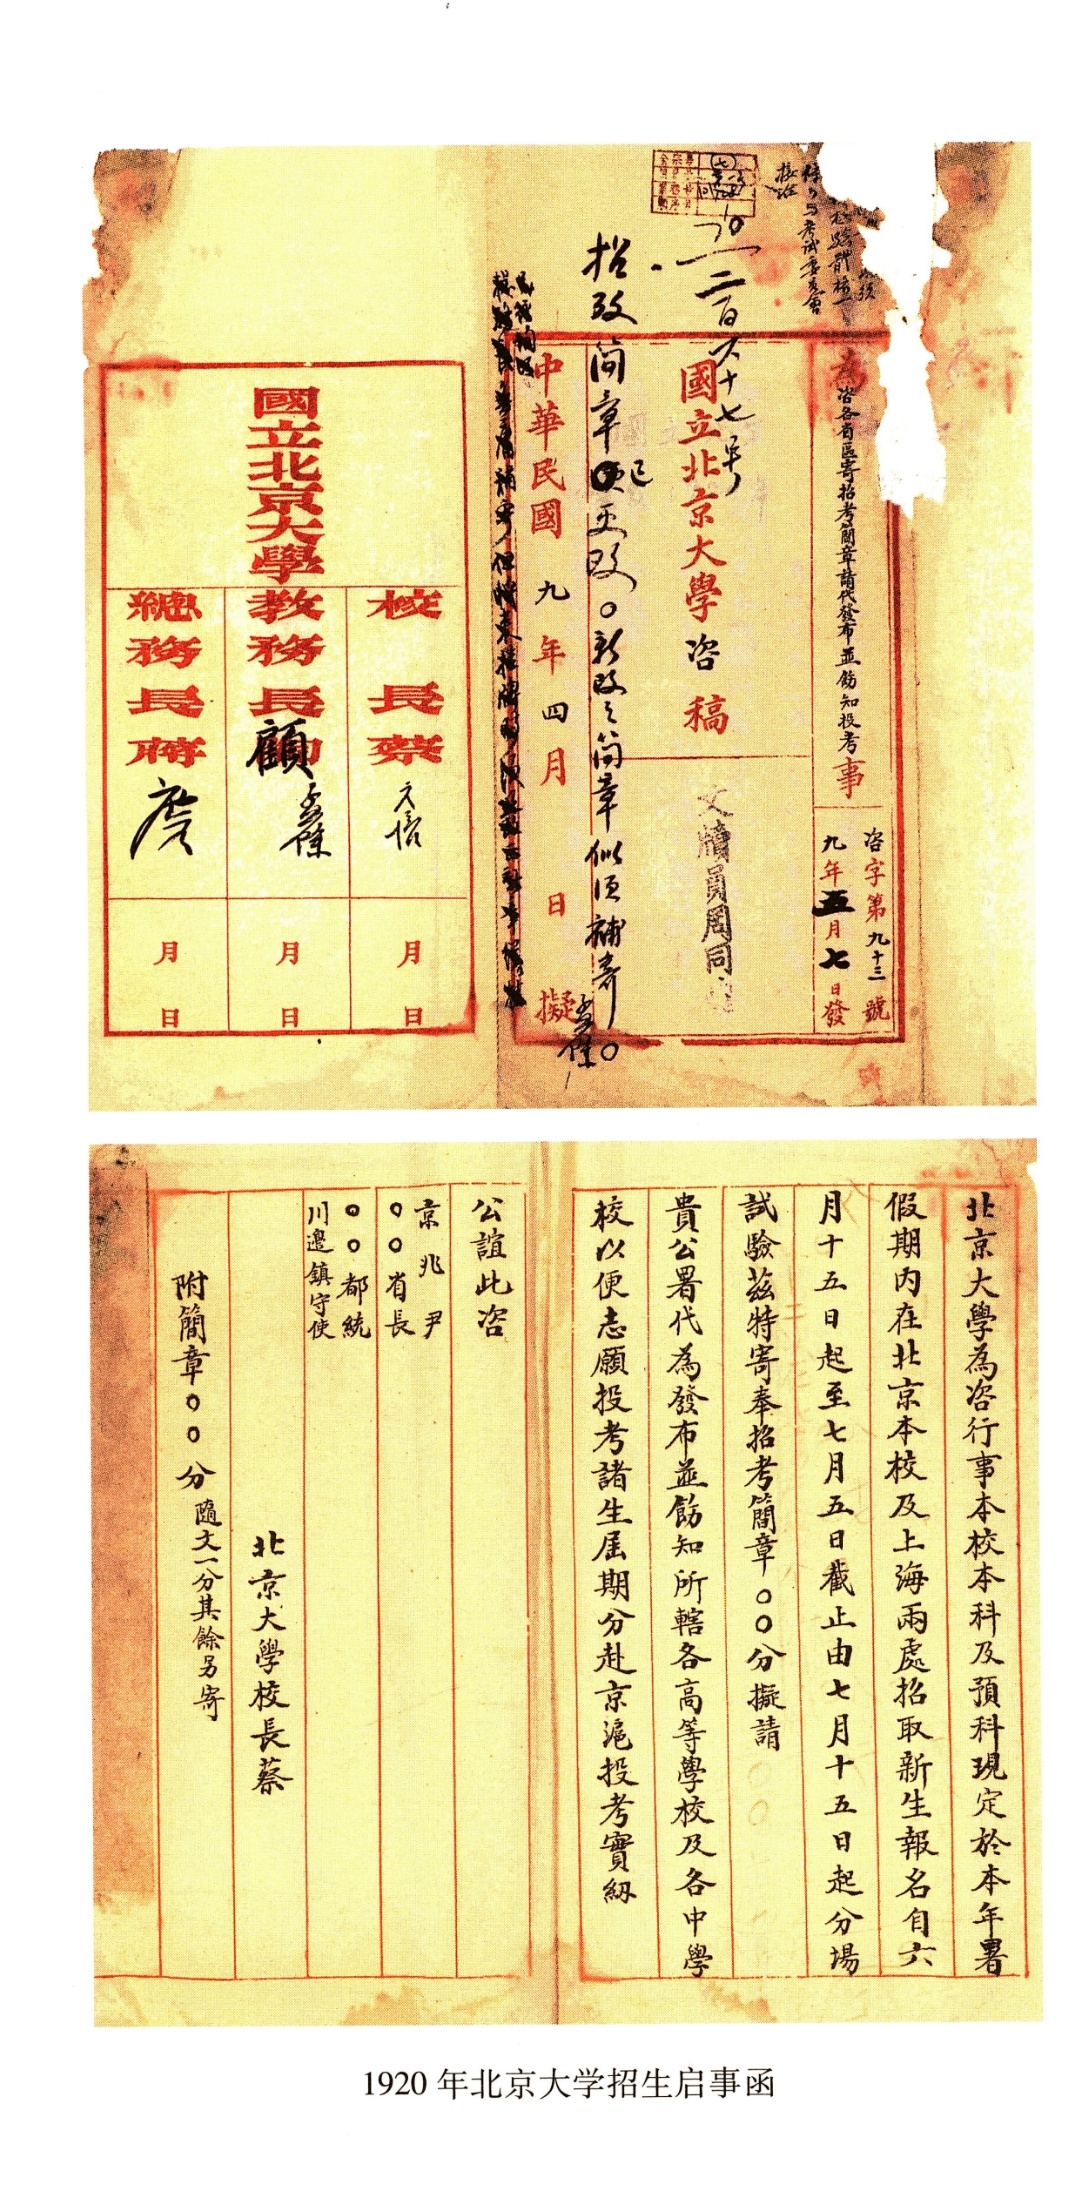 為
咨各省區寄招考簡章請代發布並飭知投考
事
咨字第九十三號
九年五月七日發
國立北京大學咨稿
文牘員周同
二百六十七号
招攷簡章已更改。新改之簡章似須補寄。
孟餘
中華民國九年四月 日擬
國立北京大學
校長蔡
元培
教務長顧
孟餘
總務長蔣
月 日
月 日
月 日
北京大學為咨行事本校本科及預科現定於本年署
假期內在北京本校及上海兩處招取新生報名自六
月十五日起至七月五日截止由七月十五日起分場
試驗茲特寄奉招考簡章○○分擬請
貴公署代為發布並飭知所轄各高等學校及各中學
校以便志願投考諸生屆期分赴京滬投考實紉
公誼此咨
京兆尹
○○省長
○○都統
川邊鎮守使
北京大學校長蔡
附簡章○○分隨文一分其餘另寄
1920年北京大学招生启事函